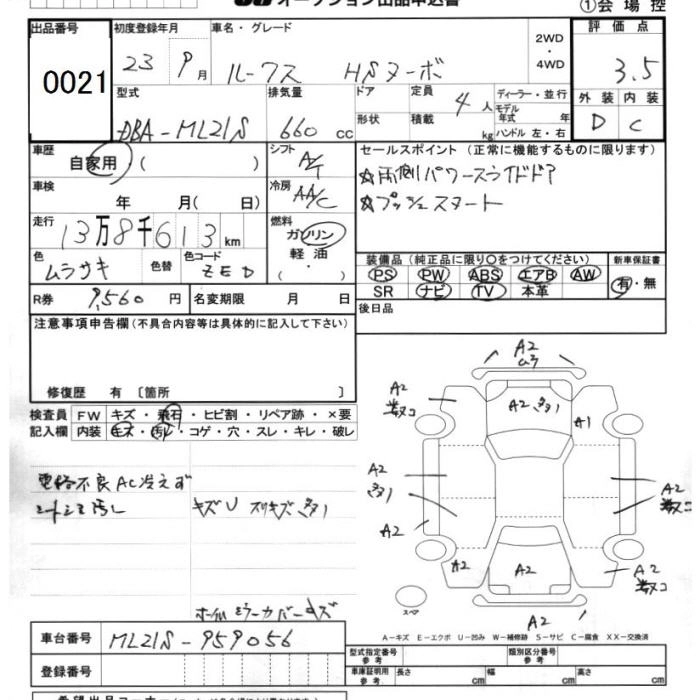 オークション出品申込書
①会場控
出品番号
0021
初度登録年月
23 9月
車名・グレード
ルークス HSターボ
2WD
・
4WD
評価点
3.5
外装 内装
D C
型式
DBA-ML21S
排気量
660 cc
ドア
形状
定員
4人
積載
kg
ディーラー・並行
モデル
年式 年
ハンドル 左・右
車歴
自家用 ( )
シフト
A/T
車検
年 月( 日)
冷房
AA/C
走行
13万8千613km
燃料
ガソリン
軽油
( ・ )
色
ムラサキ
色替
色コード
ZED
R券 9,560円
名変期限 月 日
セールスポイント (正常に機能するものに限ります)
☆両側パワースライドドア
☆プッシュスタート
装備品 (純正品に限り○をつけてください)
PS PW ABS エアB AW
SR ナビ TV 本革
新車保証書
有・無
後日品
注意事項申告欄(不具合内容等は具体的に記入して下さい)
修復歴 有 〔箇所 〕
検査員
記入欄
FW キズ・飛石・ヒビ割・リペア跡・×要
内装 キズ・汚レ・コゲ・穴・スレ・キレ・破レ
電格不良 AC冷えず
シートシミ汚レ
キズU スリキズ多
A2
A2
A2
A1
A2
A2
A2
A2
A2
A2
A2
スペア
A-キズ E-エクボ U-凹み W-補修跡 S-サビ C-腐食 XX-交換済
車台番号 ML21S-959056
登録番号
型式指定番号
参考
類別区分番号
参考
車庫証明用
参考
長さ cm 幅 cm 高さ cm